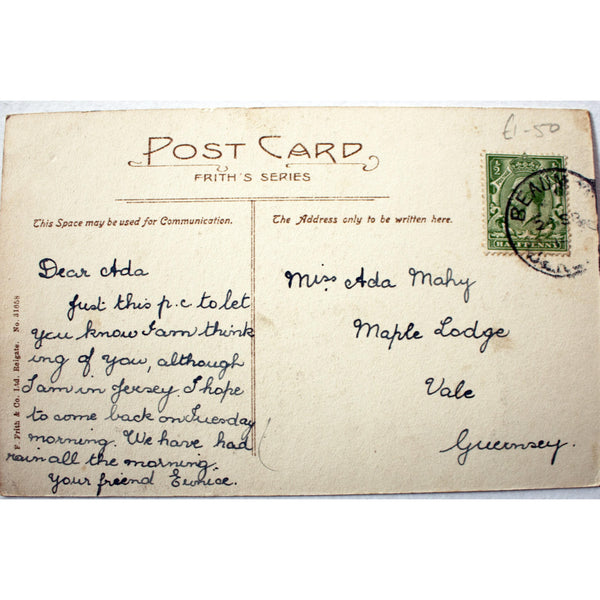 £1-50
POST CARD
FRITH'S SERIES
This Space may be used for Communication.
The Address only to be written here.
½
HALFPENNY
Dear Ada
Just this p.c to let
you know I am think
ing of you, although
I am in Jersey. I hope
to come back on Tuesday
morning. We have had
rain all the morning.
Your friend Eunice.
Miss Ada Mahy
Maple Lodge
Vale
Guernsey.
F. Frith & Co. Ltd. Reigate. No. 31658